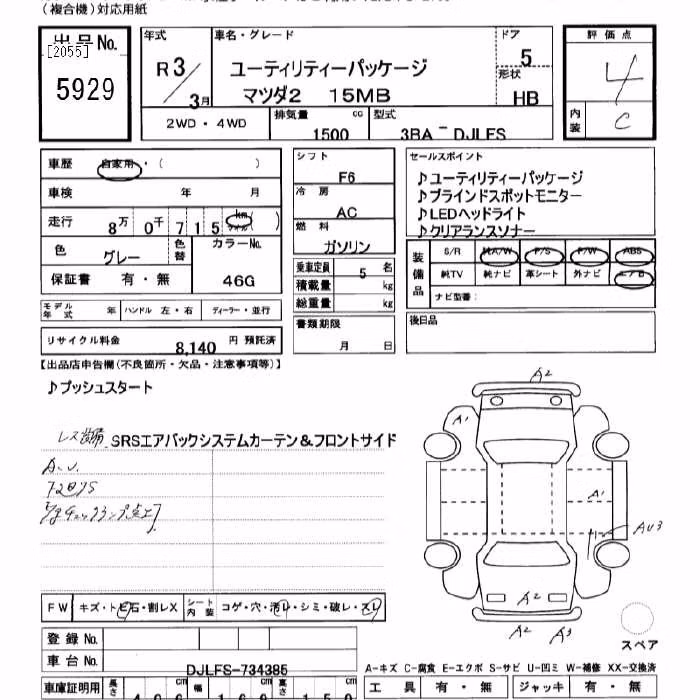 (複合機)対応用紙
出品No. 年式 車名・グレード ドア 評価点
[2055] R3/3月 ユーティリティーパッケージ 5 4
5929 マツダ2 15MB 形状 HB
2WD・4WD 排気量 1500 cc 型式 3BA-DJLFS 内装 C
車歴 自家用・( )
車検 年 月
走行 8万 0千 7 1 5 km( )
色 グレー 色替 カラーNo. 46G
保証書 有・無
モデル年式 年 ハンドル 左・右 ディーラー・並行
リサイクル料金 8,140 円 預託済
シフト F6
冷房 AC
燃料 ガソリン
乗車定員 5 名
積載量 kg
総重量 kg
書類期限 月 日
セールスポイント
♪ユーティリティーパッケージ
♪ブラインドスポットモニター
♪LEDヘッドライト
♪クリアランスソナー
装備品 S/R 純A/W P/S P/W ABS
純TV 純ナビ 革シート 外ナビ エアB
ナビ型番:
後日品
【出品店申告欄(不良箇所・欠品・注意事項等)】
♪プッシュスタート
SRSエアバックシステムカーテン&フロントサイド
A2
A1
A1
AU3
A2
A2 A3
スペア
FW キズ・トビ石・割レX シート内装 コゲ・穴・汚レ・シミ・破レ・スレ
登録No.
車台No. DJLFS-734385
A-キズ C-腐食 E-エクボ S-サビ U-凹ミ W-補修 XX-交換済
車庫証明用 長さ cm 幅 cm 高さ cm 工具 有・無 ジャッキ 有・無